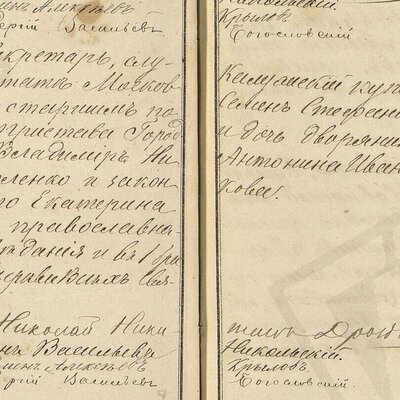 Сергій Васильевъ
екретарь, слу
татъ Москов
старшимъ по
пристава Город
Владиміръ Ни
ленко и закон
го Екатерина
православна
ждания и въ 1 бра
правивыхъ Свя
Николай Ники
нъ Васильевъ
Сергій Васильевъ
Крыловъ
Богословскій
Калужскій куп
Семенъ Стефан
и дочь дворянин
Антонина Иван
кова.
Никольскій.
Крыловъ
Богословскій.